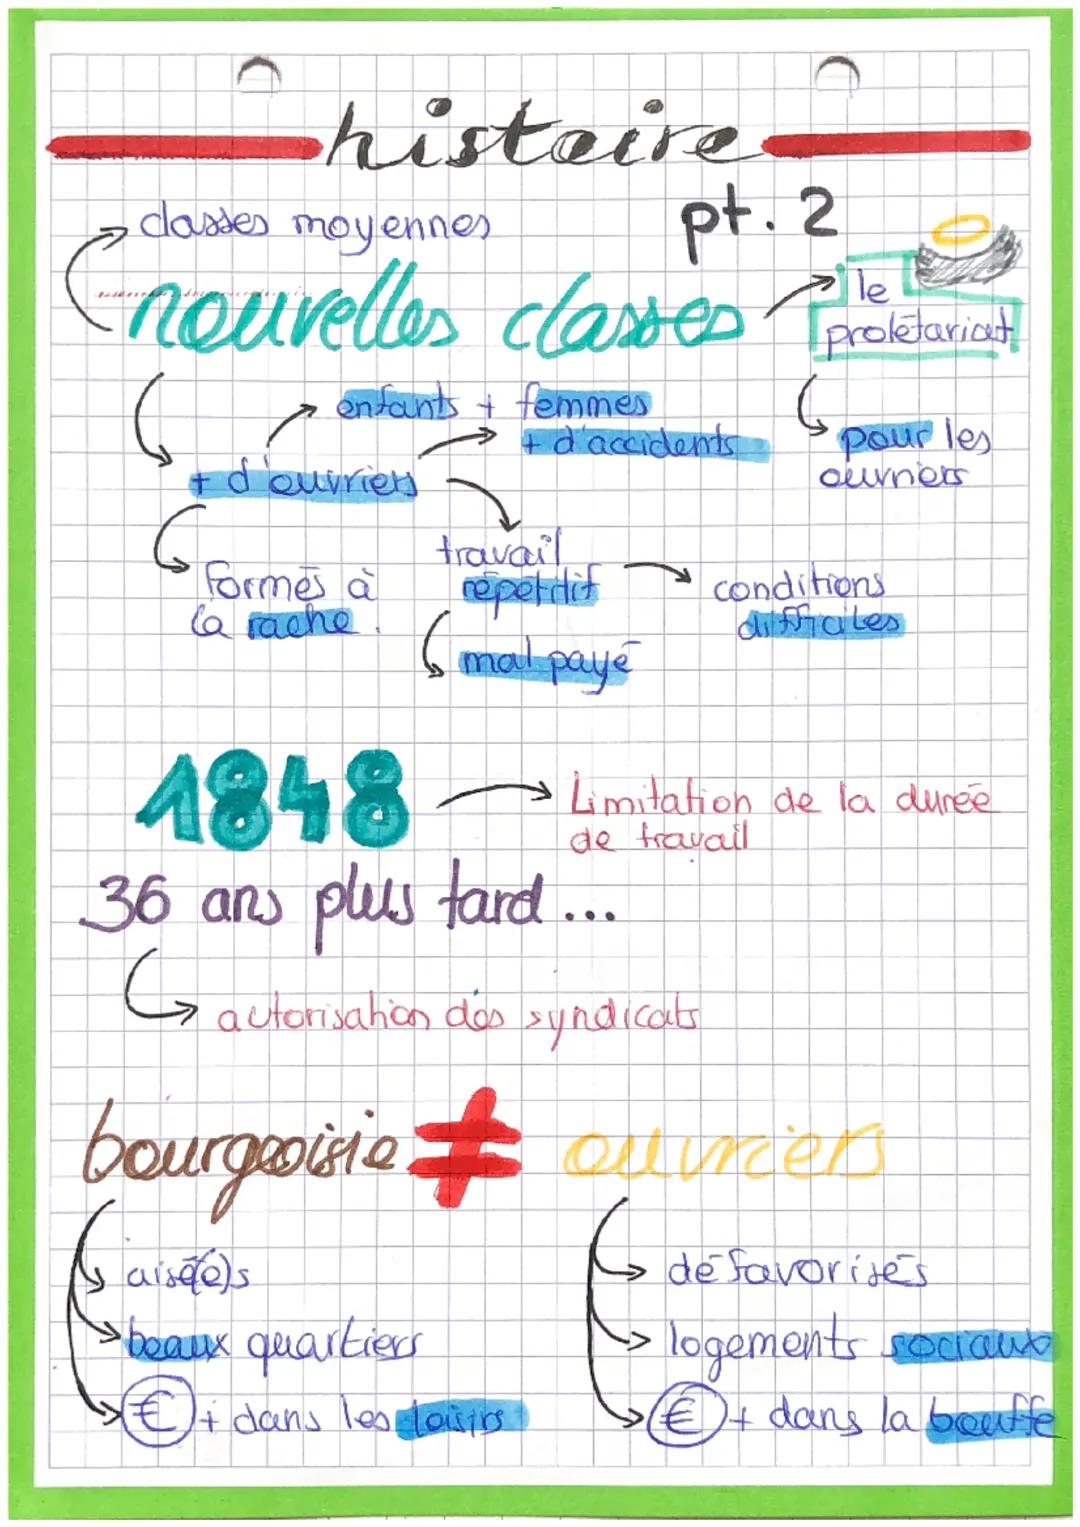 histoire
pt. 2
classes moyennes
nouvelles classes
le
prolétariat
enfants + femmes
+ d'accidents
pour les
ouvriers
+ d'ouvriers
travail
répétitif
formés à
la rache.
conditions
difficiles
mal payé
1848
Limitation de la durée
de travail
36 ans plus tard...
autorisation des syndicats
bourgeoisie ≠ ouvriers
aisé(e)s
défavorisés
beaux quartiers
logements sociaux
€ + dans les loisirs
€ + dans la bouffe